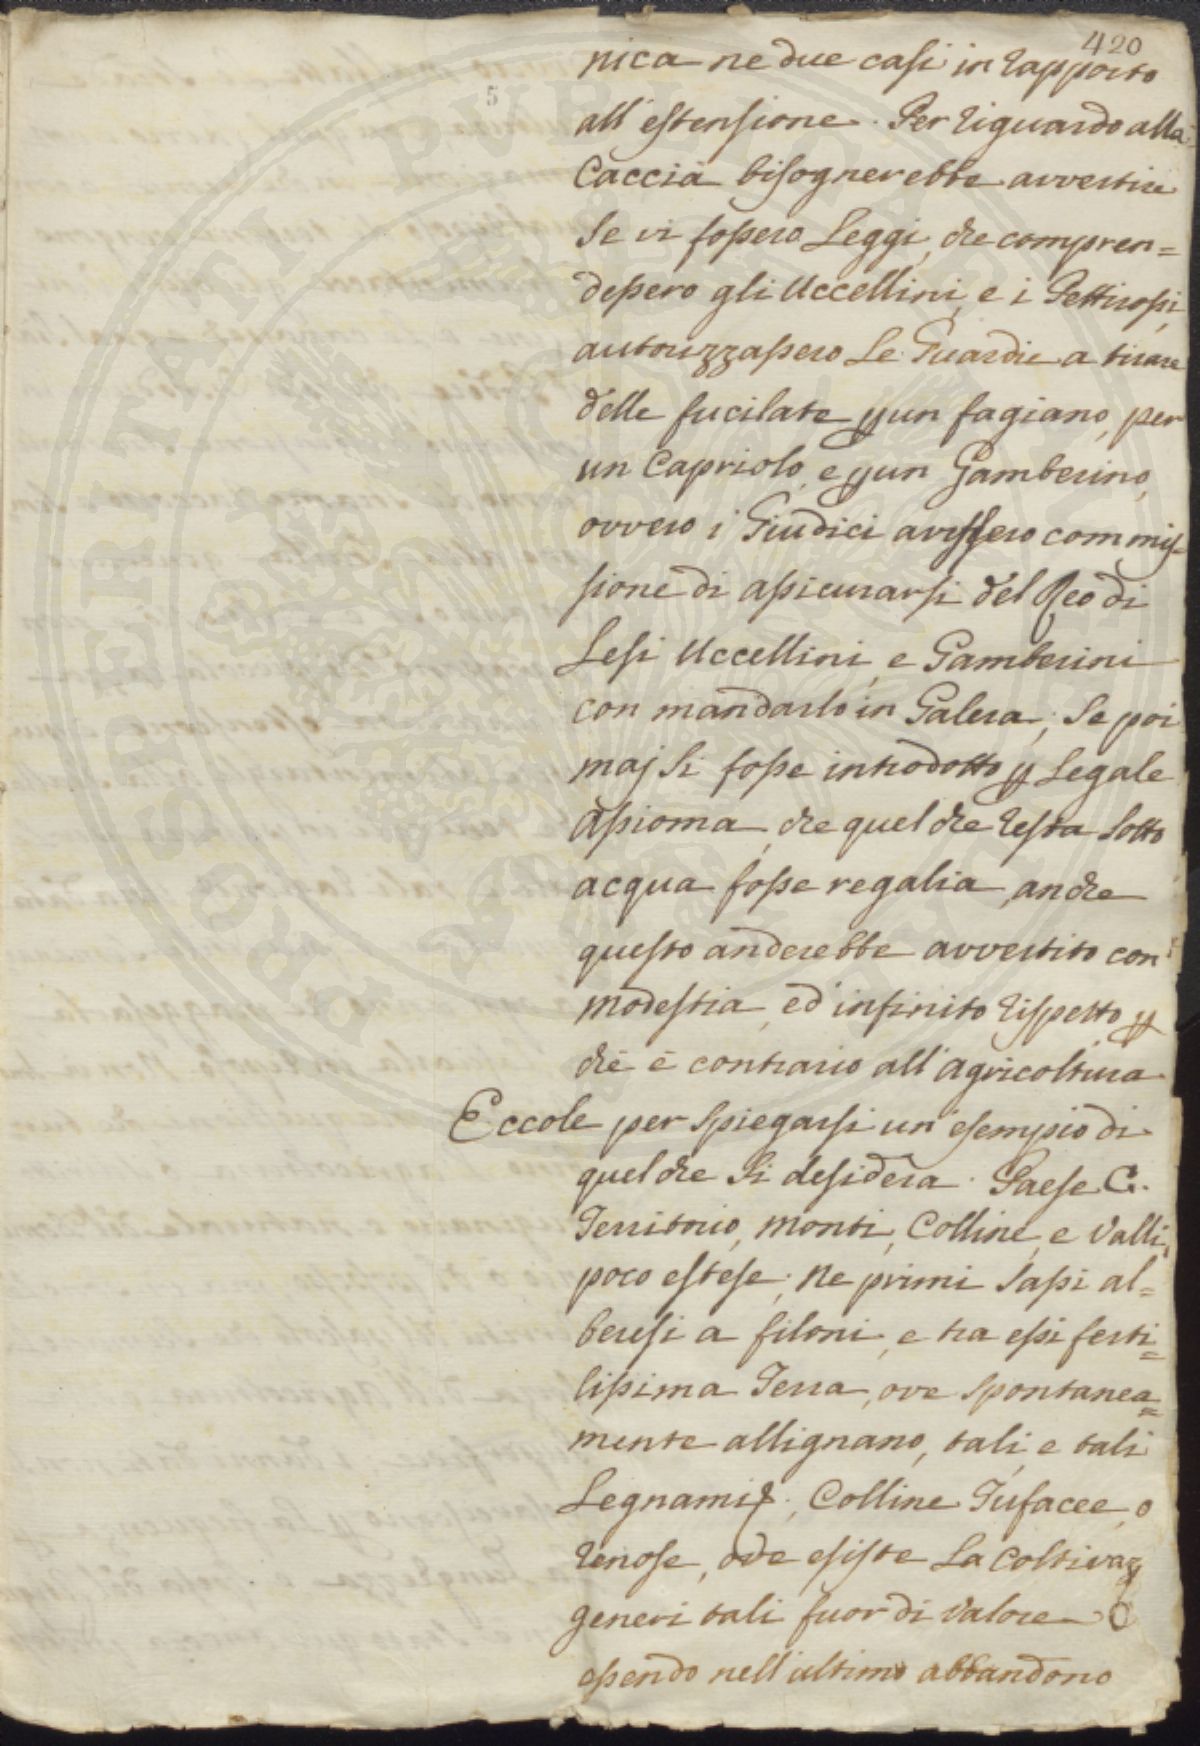 420
5
nica ne due casi in rapporto
all'estensione. Per riguardo alla
Caccia bisognerebbe avvertire
se vi fossero Leggi, che compren=
dessero gli Uccellini, e i Pettirossi,
autorizzassero le Guardie a tirare
delle fucilate p un fagiano, per
un Capriolo, e p un Gamberino,
ovvero i Giudici avessero commis-
sione di assicurarsi del Reo di
Lesi Uccellini, e Gamberini
con mandarlo in Galera; Se poi
maj si fosse introdotto p Legale
assioma, che quel che resta sotto
acqua fosse regalia, anche
questo anderebbe avvertito con
modestia, ed infinito rispetto, p
chè è contrario all'agricoltura.
Eccole per spiegarsi un esempio di
quel che si desidera. Paese C.
Territorio, Monti, Colline, e Valli,
poco estese; ne primi sassi al=
beresi a filoni, e tra essi ferti=
lissima Terra, ove spontanea=
mente allignano, tali, e tali
Legnami; Colline Tufacee, o
renose, ove esiste la coltivaz
generi tali fuor di valore
essendo nell'ultimo abbandono
PROSPERITATI PVBLICAE